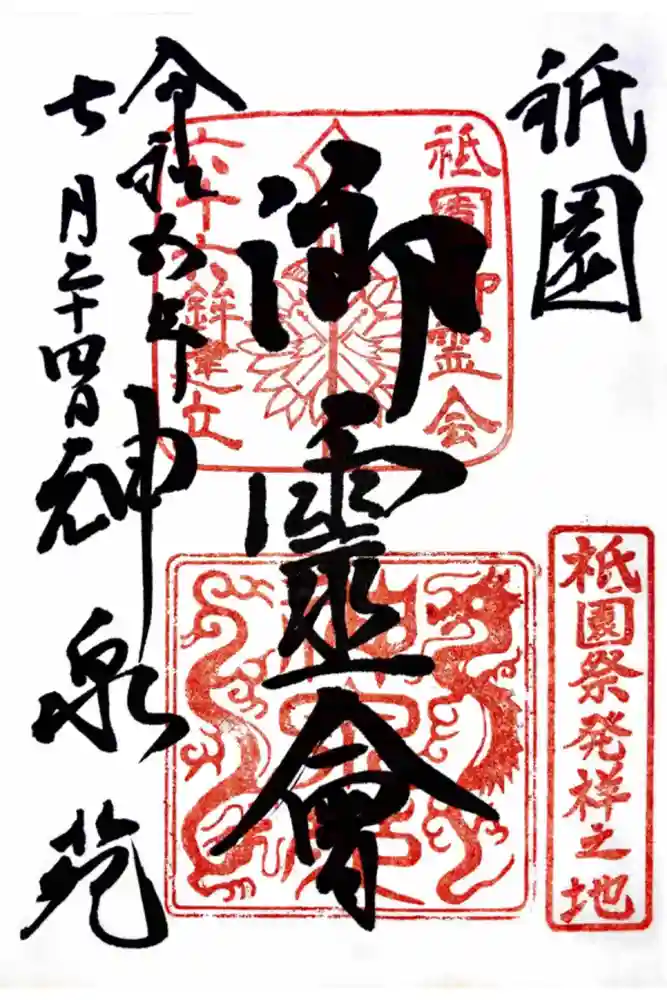 祇園
祇園御霊会
祇園祭発祥之地
御靈會
六十六鉾建立
令和五年
七月二十四日
神泉苑